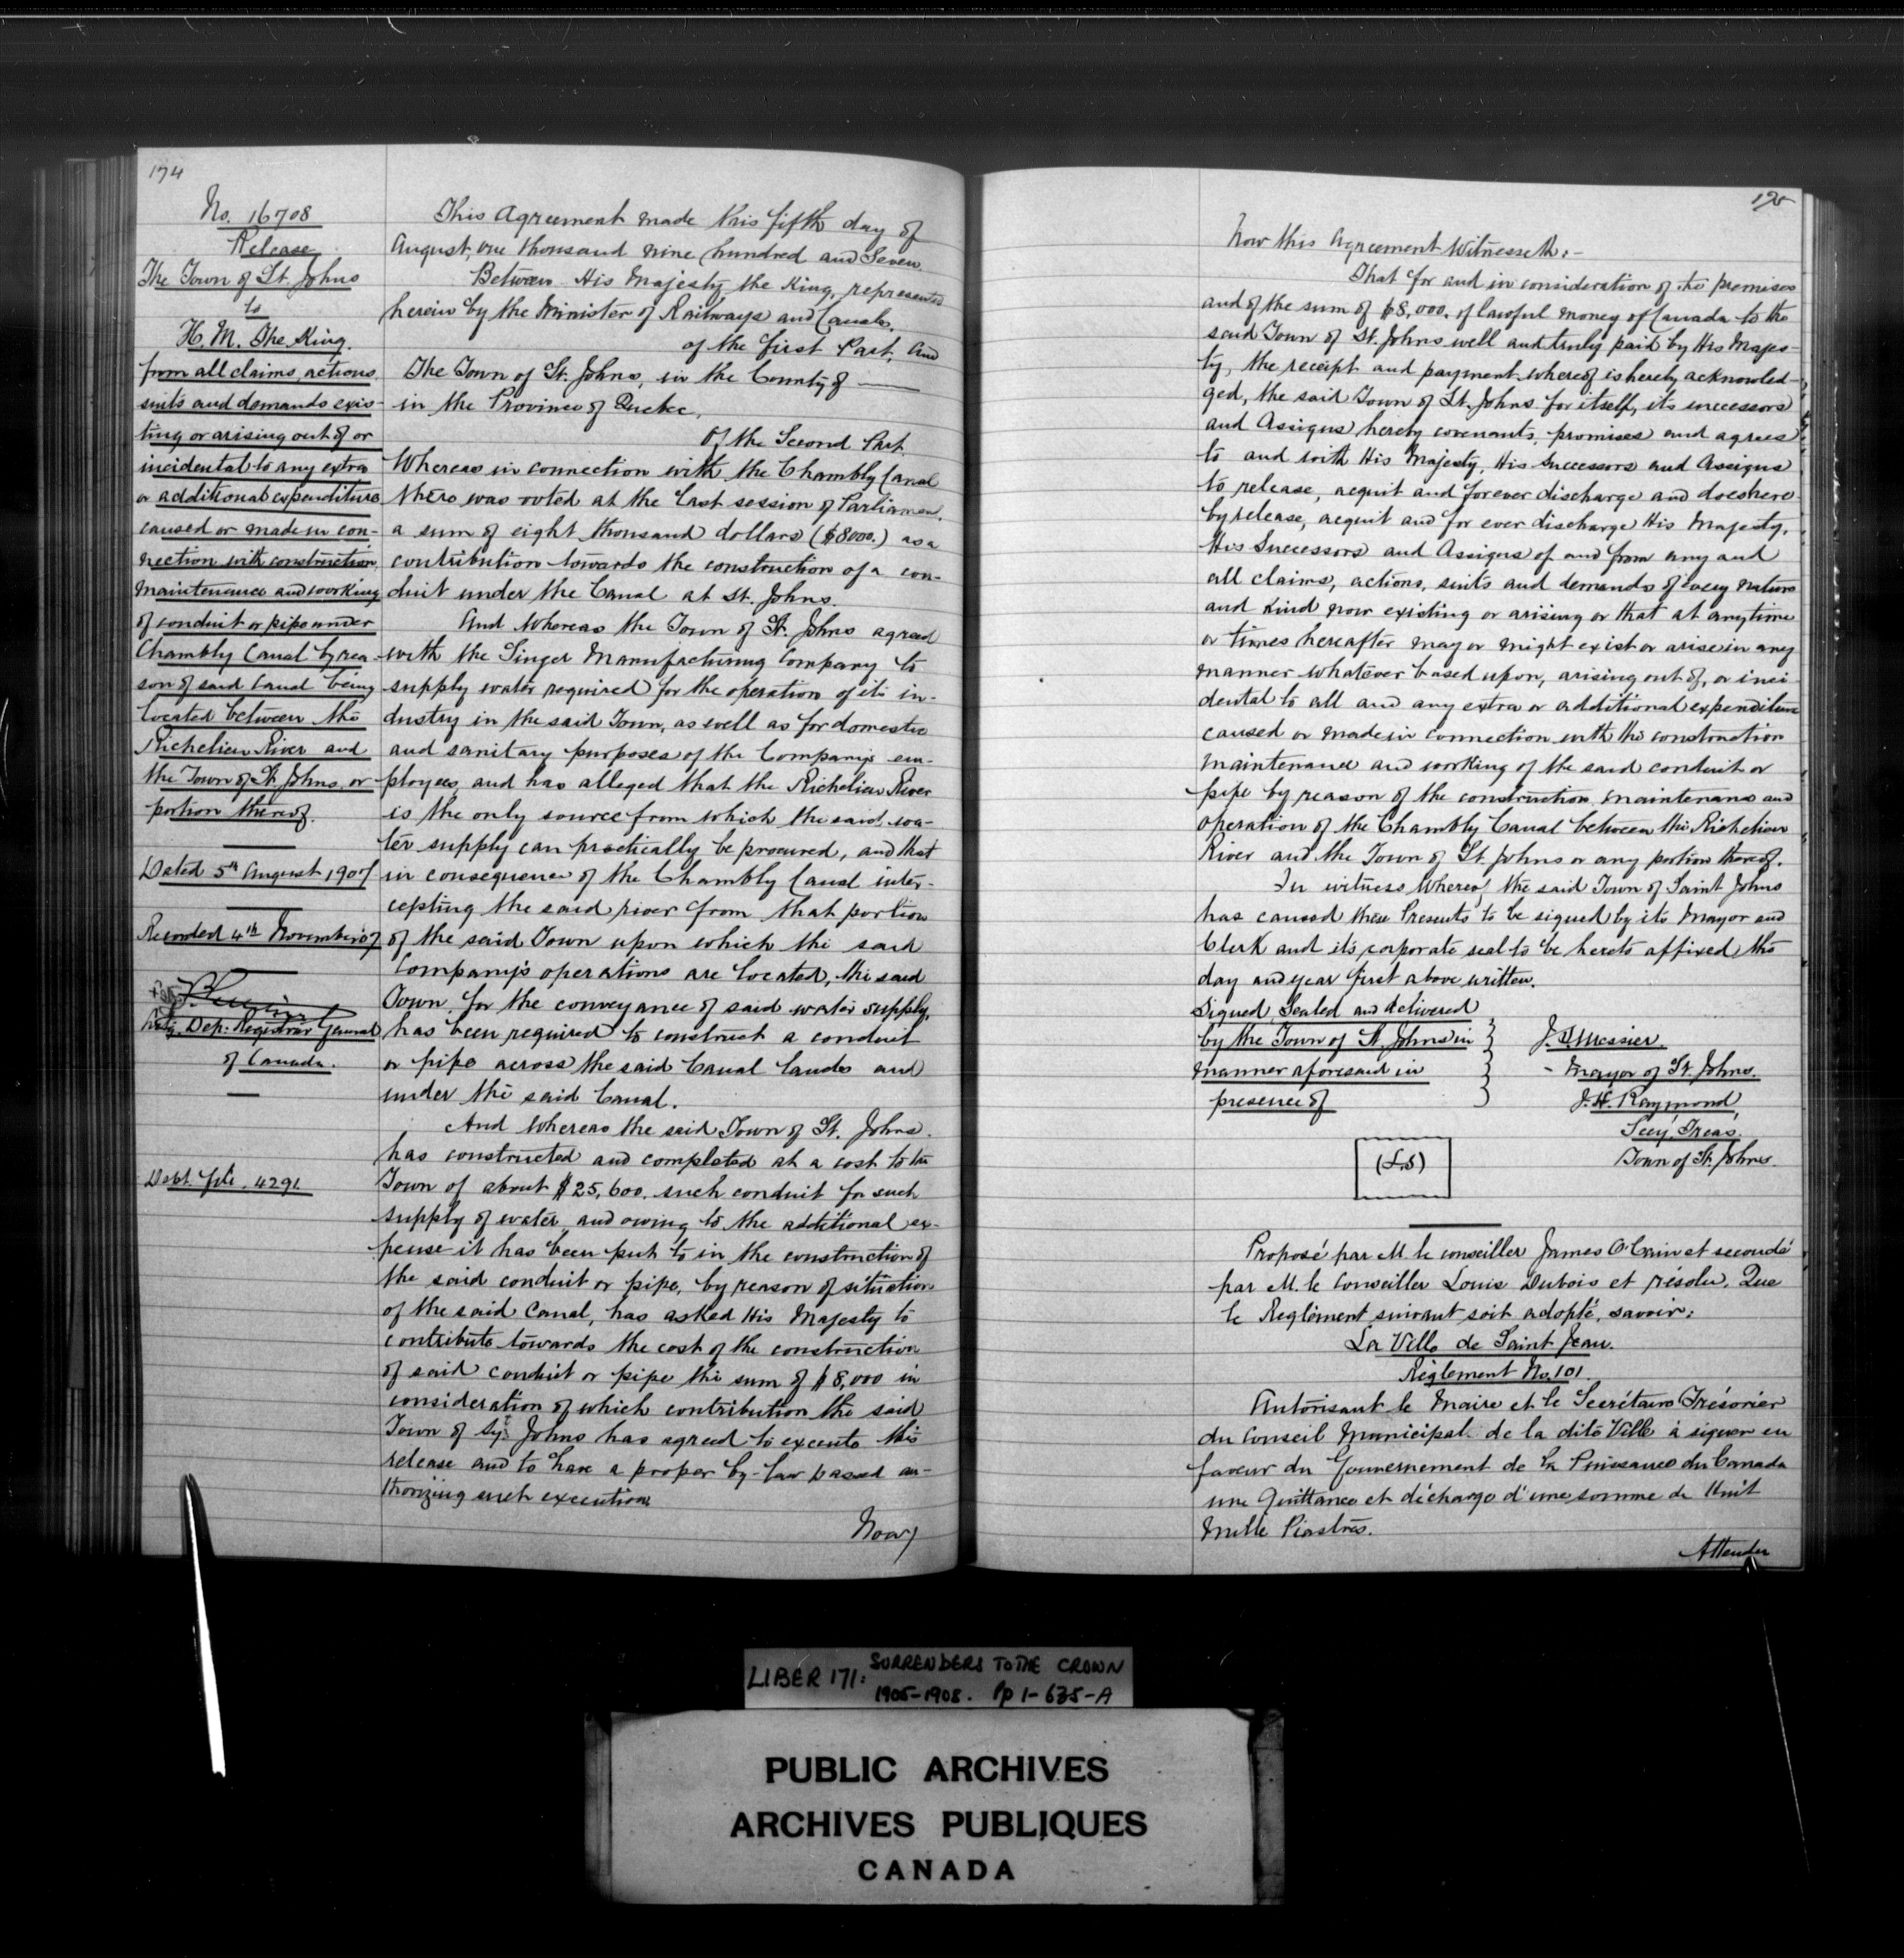 174
No. 16708
Release
The Town of St. Johns
to
H. M. The King.
from all claims, actions,
suits and demands exis-
ting or arising out of or
incidental to any extra
or additional expenditure
caused or made in con-
nection with construction,
maintenance and working
of conduit or pipe under
Chambly Canal by rea-
son of said Canal being
located between the
Richelieu River and
the Town of St. Johns, or
portion thereof.
Dated 5th August 1907
Recorded 4th November 07
Actg. Dep. Registrar General
of Canada.
Dept. file. 4291
This Agreement made this fifth day of
August, one thousand nine hundred and Seven.
Between His Majesty the King, represented
herein by the Minister of Railways and Canals,
of the First Part, and
The Town of St. Johns, in the County of ———
in the Province of Quebec,
Of the Second Part.
Whereas in connection with the Chambly Canal
there was voted at the last session of Parliament,
a sum of eight thousand dollars ($8000.) as a
contribution towards the construction of a con-
duit under the Canal at St. Johns.
And Whereas the Town of St. Johns agreed
with the Singer Manufacturing Company to
supply water required for the operation of its in-
dustry in the said Town, as well as for domestic
and sanitary purposes of the Company's em-
ployees, and has alleged that the Richelieu River
is the only source from which the said wa-
ter supply can practically be procured, and that
in consequence of the Chambly Canal inter-
cepting the said river from that portion
of the said Town upon which the said
Company's operations are located, the said
Town, for the conveyance of said water supply,
has been required to construct a conduit
or pipe across the said Canal lands and
under the said Canal.
And Whereas the said Town of St. Johns.
has constructed and completed at a cost to the
Town of about $25,600. such conduit for such
supply of water, and owing to the additional ex-
pense it has been put to in the construction of
the said conduit or pipe, by reason of situation
of the said Canal, has asked His Majesty to
contribute towards the cost of the construction
of said conduit or pipe the sum of $8,000 in
consideration of which contribution the said
Town of St. Johns has agreed to execute this
release and to have a proper by-law passed au-
thorizing such execution.
Now/
175
Now this Agreement Witnesseth:-
That for and in consideration of the premises
and of the sum of $8,000. of lawful money of Canada to the
said Town of St. Johns well and truly paid by His Majes-
ty, the receipt and payment whereof is hereby acknowled-
ged, the said Town of St. Johns for itself, its successors
and Assigns hereby covenants, promises and agrees
to and with His Majesty, His Successors and Assigns
to release, acquit and forever discharge and does here-
by release, acquit and for ever discharge His Majesty,
His Successors and Assigns of and from any and
all claims, actions, suits and demands of every nature
and kind now existing or arising or that at anytime
or times hereafter may or might exist or arise in any
manner whatever based upon, arising out of, or inci-
dental to all and any extra or additional expenditure
caused or made in connection with the construction
maintenance and working of the said conduit or
pipe by reason of the construction, maintenance and
operation of the Chambly Canal between the Richelieu
River and the Town of St. Johns or any portion thereof.
In witness Whereof the said Town of Saint Johns
has caused these Presents to be signed by its Mayor and
Clerk and its corporate seal to be hereto affixed the
day and year first above written.
Signed, Sealed and delivered
by the Town of St. Johns in
manner aforesaid in
presence of
J. Messier.
- Mayor of St. Johns.
J. H. Raymond,
Secy. Treas.
Town of St. Johns.
(LS)
Proposé par M. le conseiller James O'Cain et secondé
par M. le Conseiller Louis Dubois et résolu, Que
le Reglement suivant soit adopté, savoir:
La Ville de Saint Jean.
Règlement No. 101.
Autorisant le Maire et le Secrétaire Trésorier
du Conseil Municipal de la dite Ville à signer en
faveur du Gouvernement de la Puissance du Canada
une Quittance et décharge d'une somme de Huit
Mille Piastres.
Attendu
LIBER 171: SURRENDERS TO THE CROWN
1905-1908. Pp 1-635-A
PUBLIC ARCHIVES
ARCHIVES PUBLIQUES
CANADA